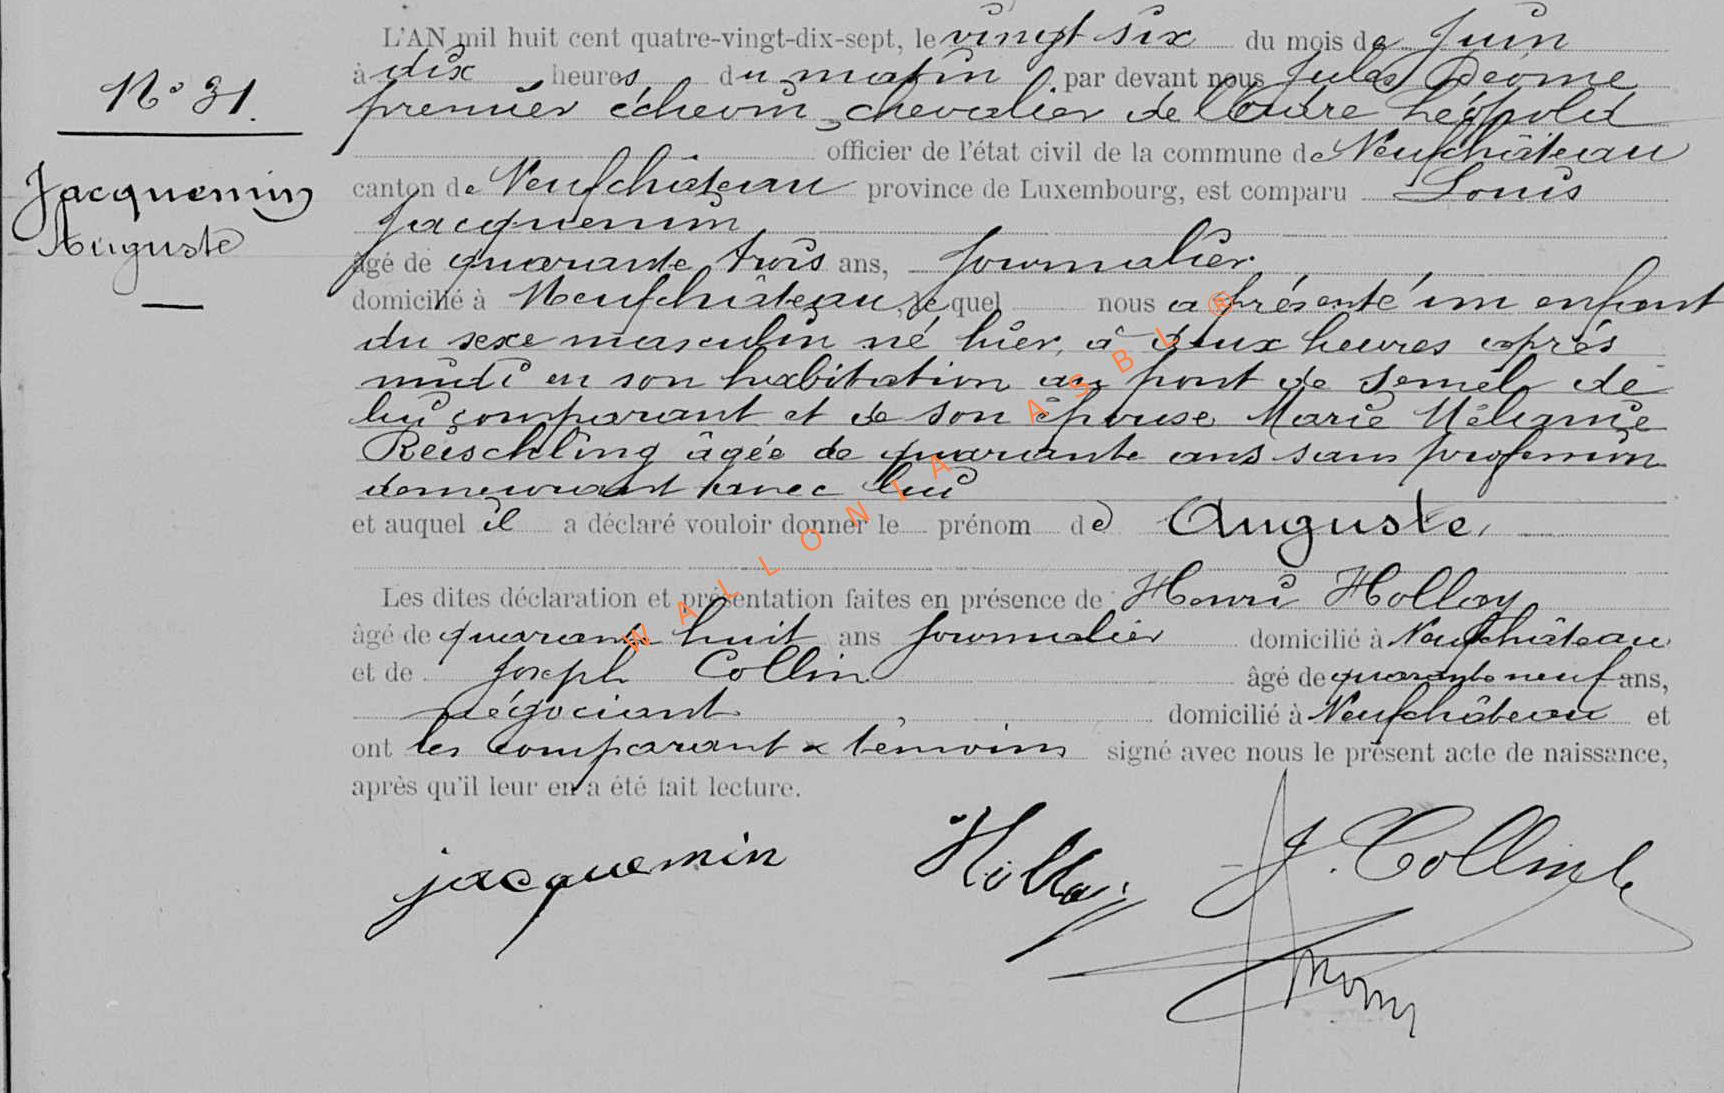 L'AN mil huit cent quatre-vingt-dix-sept, le vingt six du mois de Juin
à dix heures du matin par devant nous Jules
N° 31.
premier échevin, chevalier de l'Ordre Léopold
officier de l'état civil de la commune de Neufchâteau
Jacquemin
Auguste
canton de Neufchâteau province de Luxembourg, est comparu Louis
Jacquemin
âgé de quarante trois ans, Journalier
domicilié à Neufchâteau, lequel nous a présenté un enfant
du sexe masculin né hier, à deux heures après
midi en son habitation au pont de Semel de
lui comparant et de son épouse Marie Mélanie
Reischling âgée de quarante ans sans profession
demeurant avec lui
et auquel il a déclaré vouloir donner le prénom de Auguste,
Les dites déclaration et présentation faites en présence de Henri Hollay
âgé de quarante huit ans Journalier domicilié à Neufchâteau
et de Joseph Collin âgé de quarante neuf ans,
négociant domicilié à Neufchâteau et
ont les comparant & témoins signé avec nous le présent acte de naissance,
après qu'il leur en a été fait lecture.
jacquemin Hollay J. Collin
WALLONIA ASBL ®